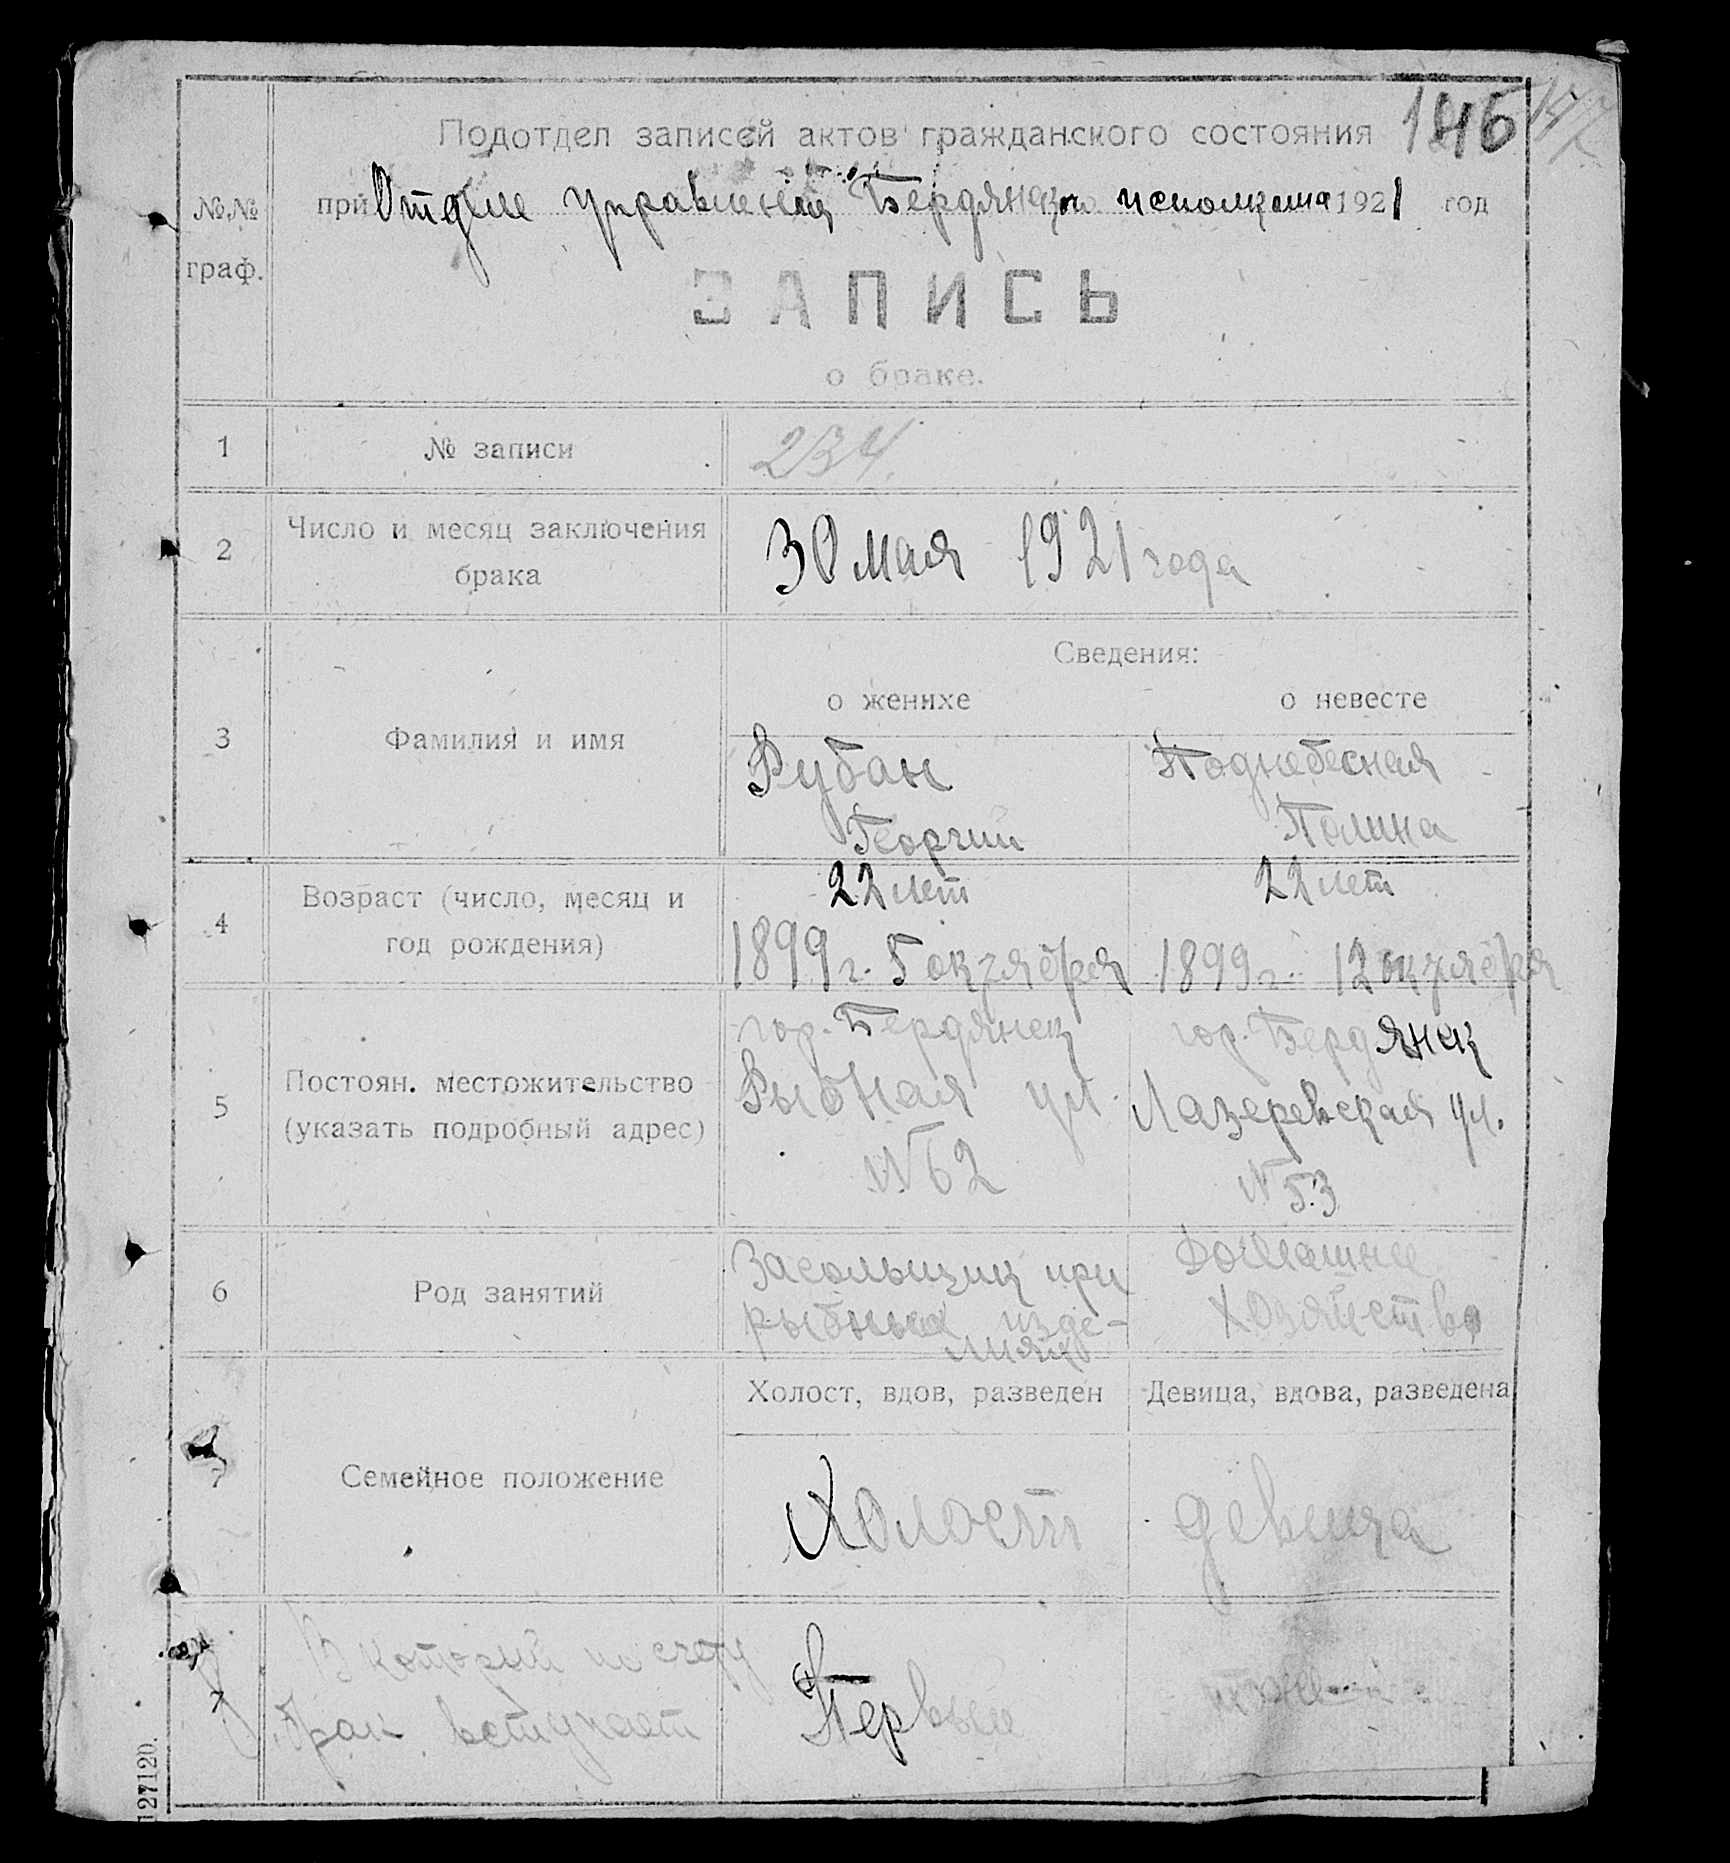 146 147
Подотдел записей актов гражданского состояния
при Отделе управления Бердянского исполкома 1921 год
№№
граф.
ЗАПИСЬ
о браке.
1 № записи 234.
2 Число и месяц заключения
брака
30 мая 1921 года
3 Фамилия и имя
Сведения:
о женихе о невесте
Рубан Поднебесная
Георгий Полина
4 Возраст (число, месяц и
год рождения)
22 лет 22 лет
1899 г. 5 октября 1899 г. 12 октября
5 Постоян. местожительство
(указать подробный адрес)
гор. Бердянск гор. Бердянск
Рыбная ул. Лазеревская ул.
№ 62 № 53
6 Род занятий
Засольщик при Домашнее
рыбных изде- хозяйство
лиях
Холост, вдов, разведен Девица, вдова, разведена
7 Семейное положение
Холост девица
7 В который по счету
брак вступает
Первый
127120.